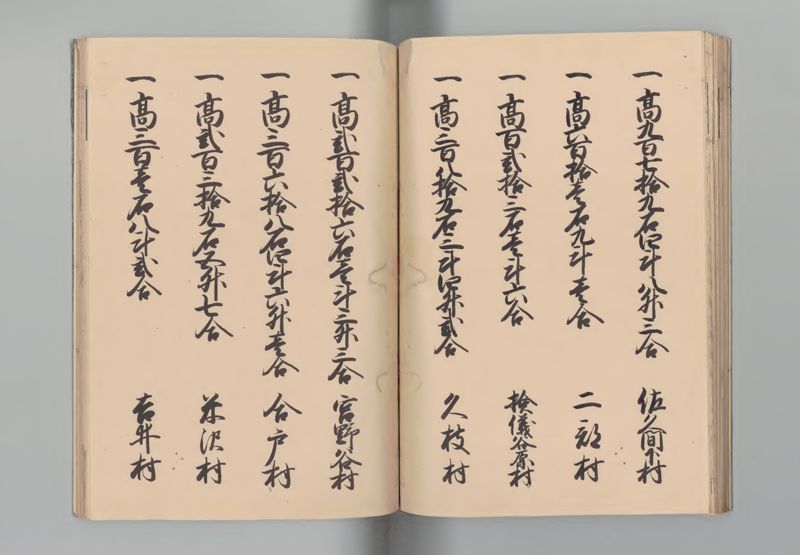 一高九百七拾九石四斗八升三合 佐久間下村
一高六百拾壱石九斗壱合 二部村
一高百弐拾三石壱斗六合 検儀谷原村
一高三百八拾九石二斗四升弐合 久枝村
一高弐百弐拾六石壱斗三升三合 宮野谷村
一高三百六拾八石四斗六升壱合 合戸村
一高弐百三拾九石五升七合 米沢村
一高二百壱石八斗弐合 吉井村